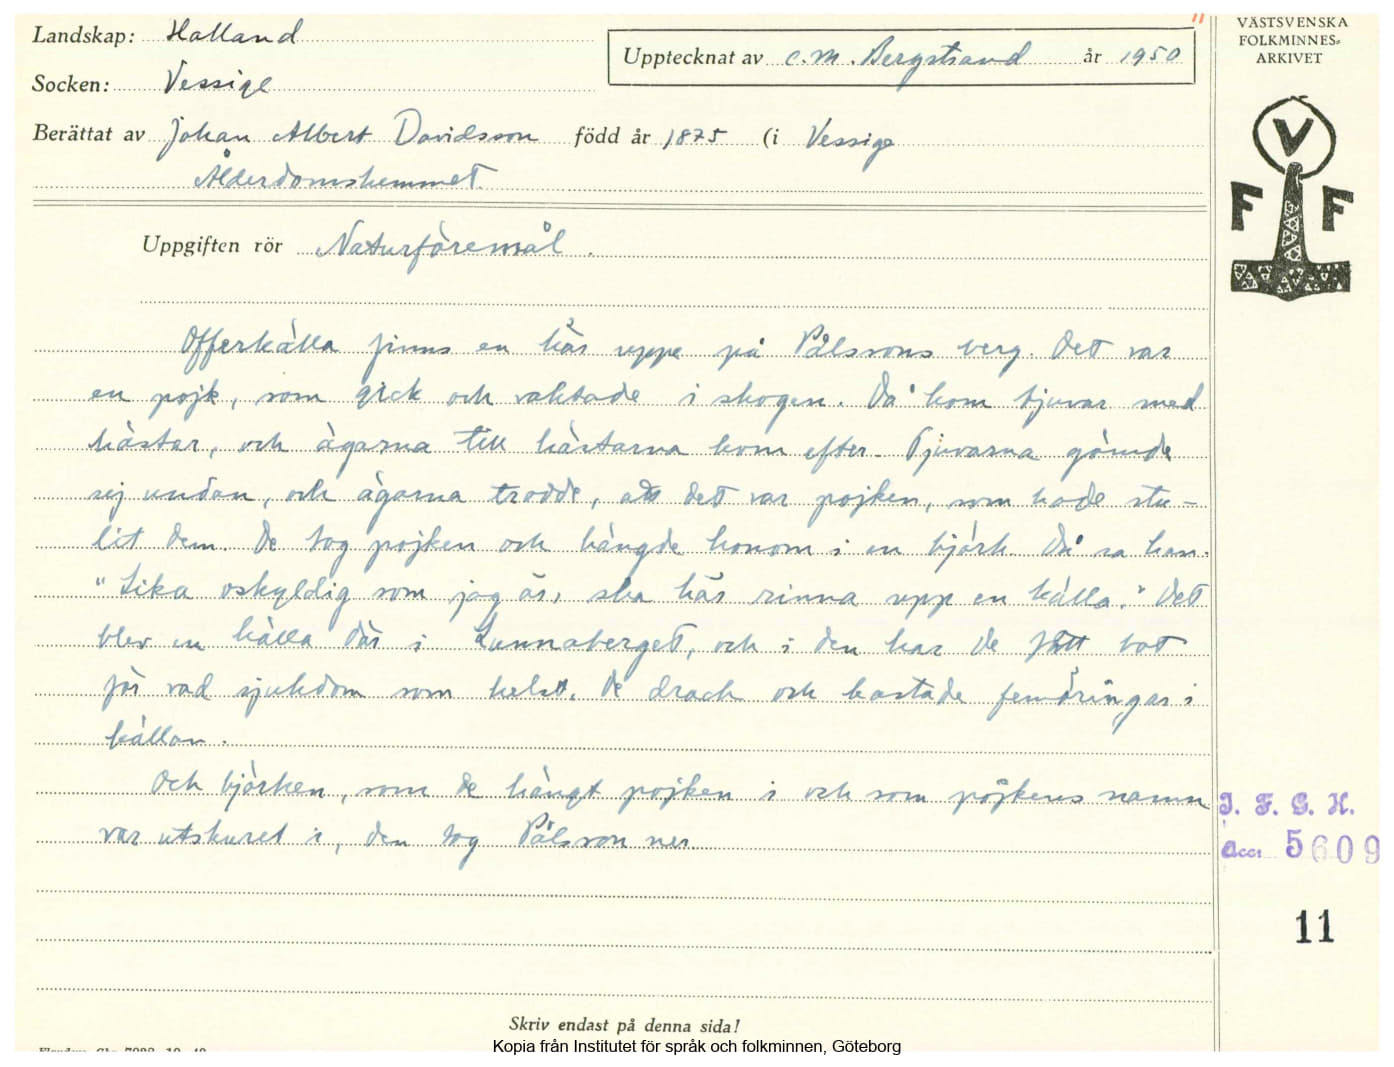 Landskap: Halland
Socken: Vessige
Upptecknat av C.M. Bergstrand år 1950
VÄSTSVENSKA
FOLKMINNES-
ARKIVET
Berättat av Johan Albert Davidsson född år 1875 (i Vessige
Ålderdomshemmet.
V
F F
Uppgiften rör Naturföremål.
Offerkälla finns en här uppe på Pålssons berg. Det var
en pojk, som gick och vaktade i skogen. Då kom tjuvar med
hästar, och ägarna till hästarna kom efter. Tjuvarna gömde
sej undan, och ägarna trodde, att det var pojken, som hade stu-
lit dem. De tog pojken och hängde honom i en björk. Då sa han:
"Lika oskyldig som jag är, ska här rinna upp en källa." Det
blev en källa där i Lunnaberget, och i den har de fått bot
för vad sjukdom som helst. De drack och kastade femöringar i
källan.
Och björken, som de hängt pojken i och som pojkens namn
var utskuret i, den tog Pålsson ner.
I. F. G. H.
Acc: 5609
11
Skriv endast på denna sida!
Kopia från Institutet för språk och folkminnen, Göteborg